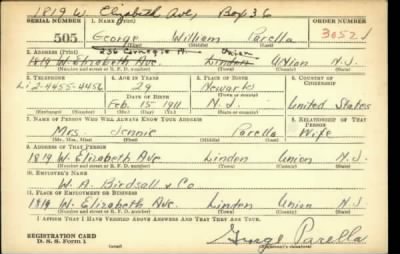 1819 W. Elizabeth Ave, Box 36
SERIAL NUMBER 1. NAME (Print) ORDER NUMBER
505 George William Parella 3052
(First) (Middle) (Last)
236 Carnegie Union
2. ADDRESS (Print)
1819 W. Elizabeth Ave. Linden Union N.J.
(Number and street or R. F. D. number) (Town) (County) (State)
3. TELEPHONE 4. AGE IN YEARS 5. PLACE OF BIRTH 6. COUNTRY OF CITIZENSHIP
Li-2-4455-4456 29 Newark
DATE OF BIRTH
Feb. 15 1911 N.J. United States
(Exchange) (No.) (Mo.) (Day) (Yr.) (State or country)
7. NAME OF PERSON WHO WILL ALWAYS KNOW YOUR ADDRESS 8. RELATIONSHIP OF THAT PERSON
Mrs. Jennie Parella Wife
(Mr., Mrs., Miss) (First) (Middle) (Last)
9. ADDRESS OF THAT PERSON
1819 W. Elizabeth Ave Linden Union N.J.
(Number and street or R. F. D. number) (Town) (County) (State)
10. EMPLOYER'S NAME
W. A. Birdsall & Co
11. PLACE OF EMPLOYMENT OR BUSINESS
1819 W. Elizabeth Ave Linden Union N.J.
(Number and street or R. F. D. number) (Town) (County) (State)
I AFFIRM THAT I HAVE VERIFIED ABOVE ANSWERS AND THAT THEY ARE TRUE.
REGISTRATION CARD
D. S. S. Form 1 George Parella
(Registrant's signature)